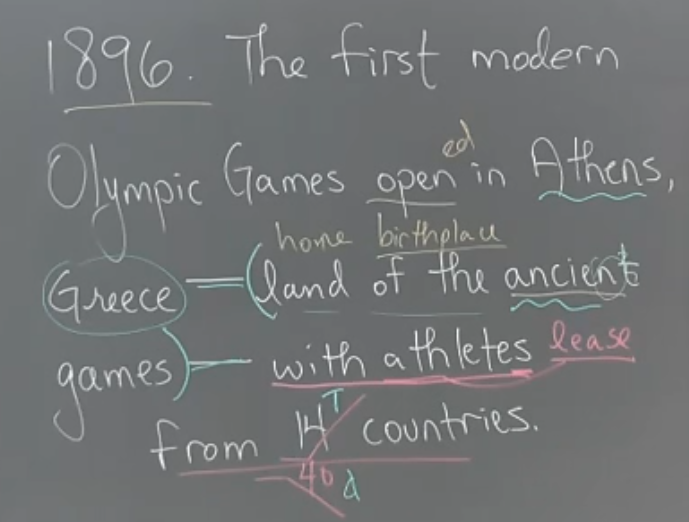 1896. The first modern
ed
Olympic Games open in Athens,
home birthplace
Greece = (land of the ancient
games) - with athletes lease
T
from 14 countries.
40 d